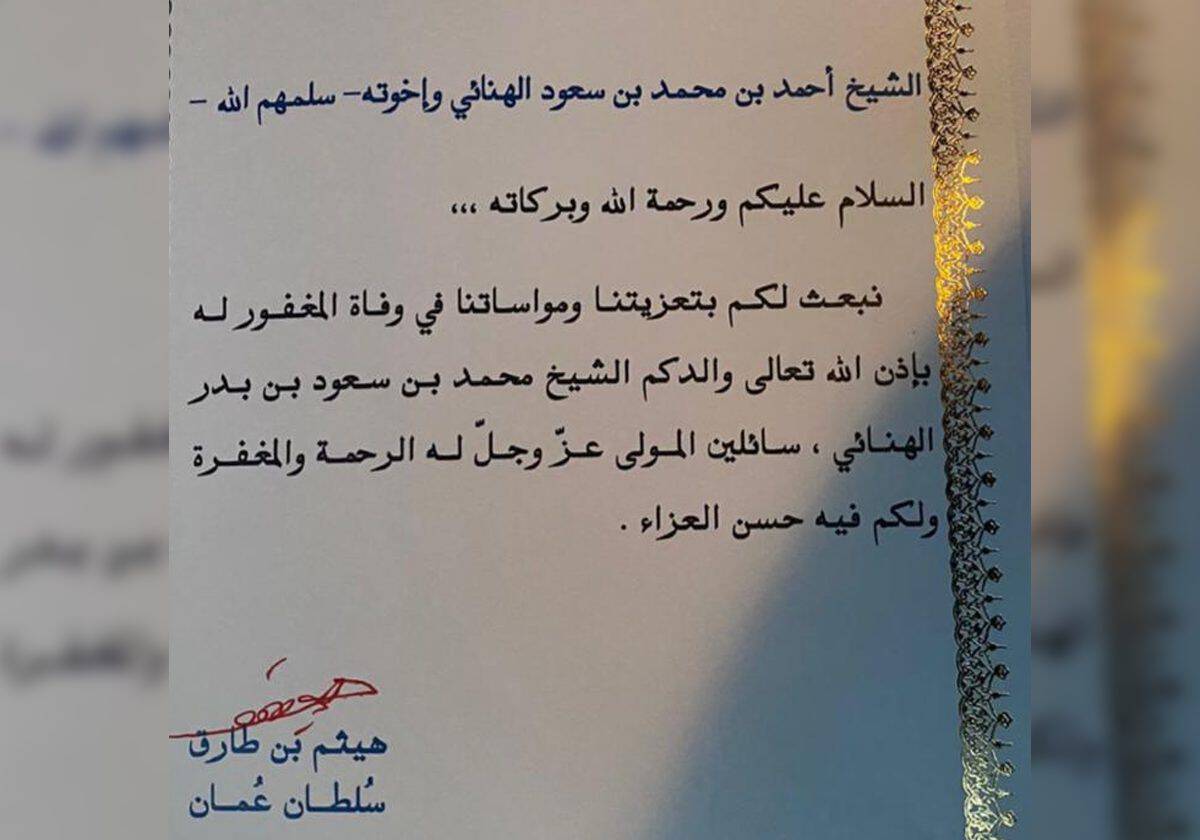 الشيخ أحمد بن محمد بن سعود الهنائي وإخوته- سلمهم الله -
السلام عليكم ورحمة الله وبركاته ،،،
نبعث لكم بتعزيتنا ومواساتنا في وفاة المغفور له
بإذن الله تعالى والدكم الشيخ محمد بن سعود بن بدر
الهنائي ، سائلين المولى عزّ وجلّ له الرحمة والمغفرة
ولكم فيه حسن العزاء .
هيثم بن طارق
سُلطان عُمان